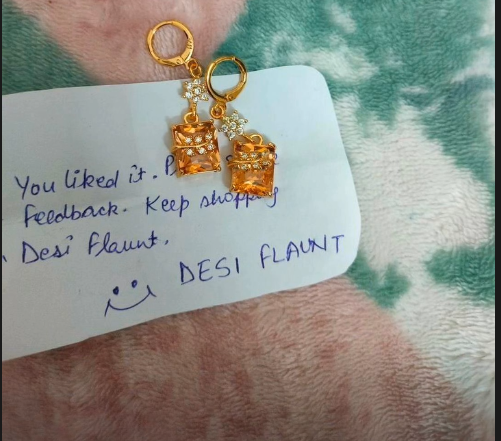 You liked it.
feedback. Keep shopping
Desi Flaunt.
DESI FLAUNT